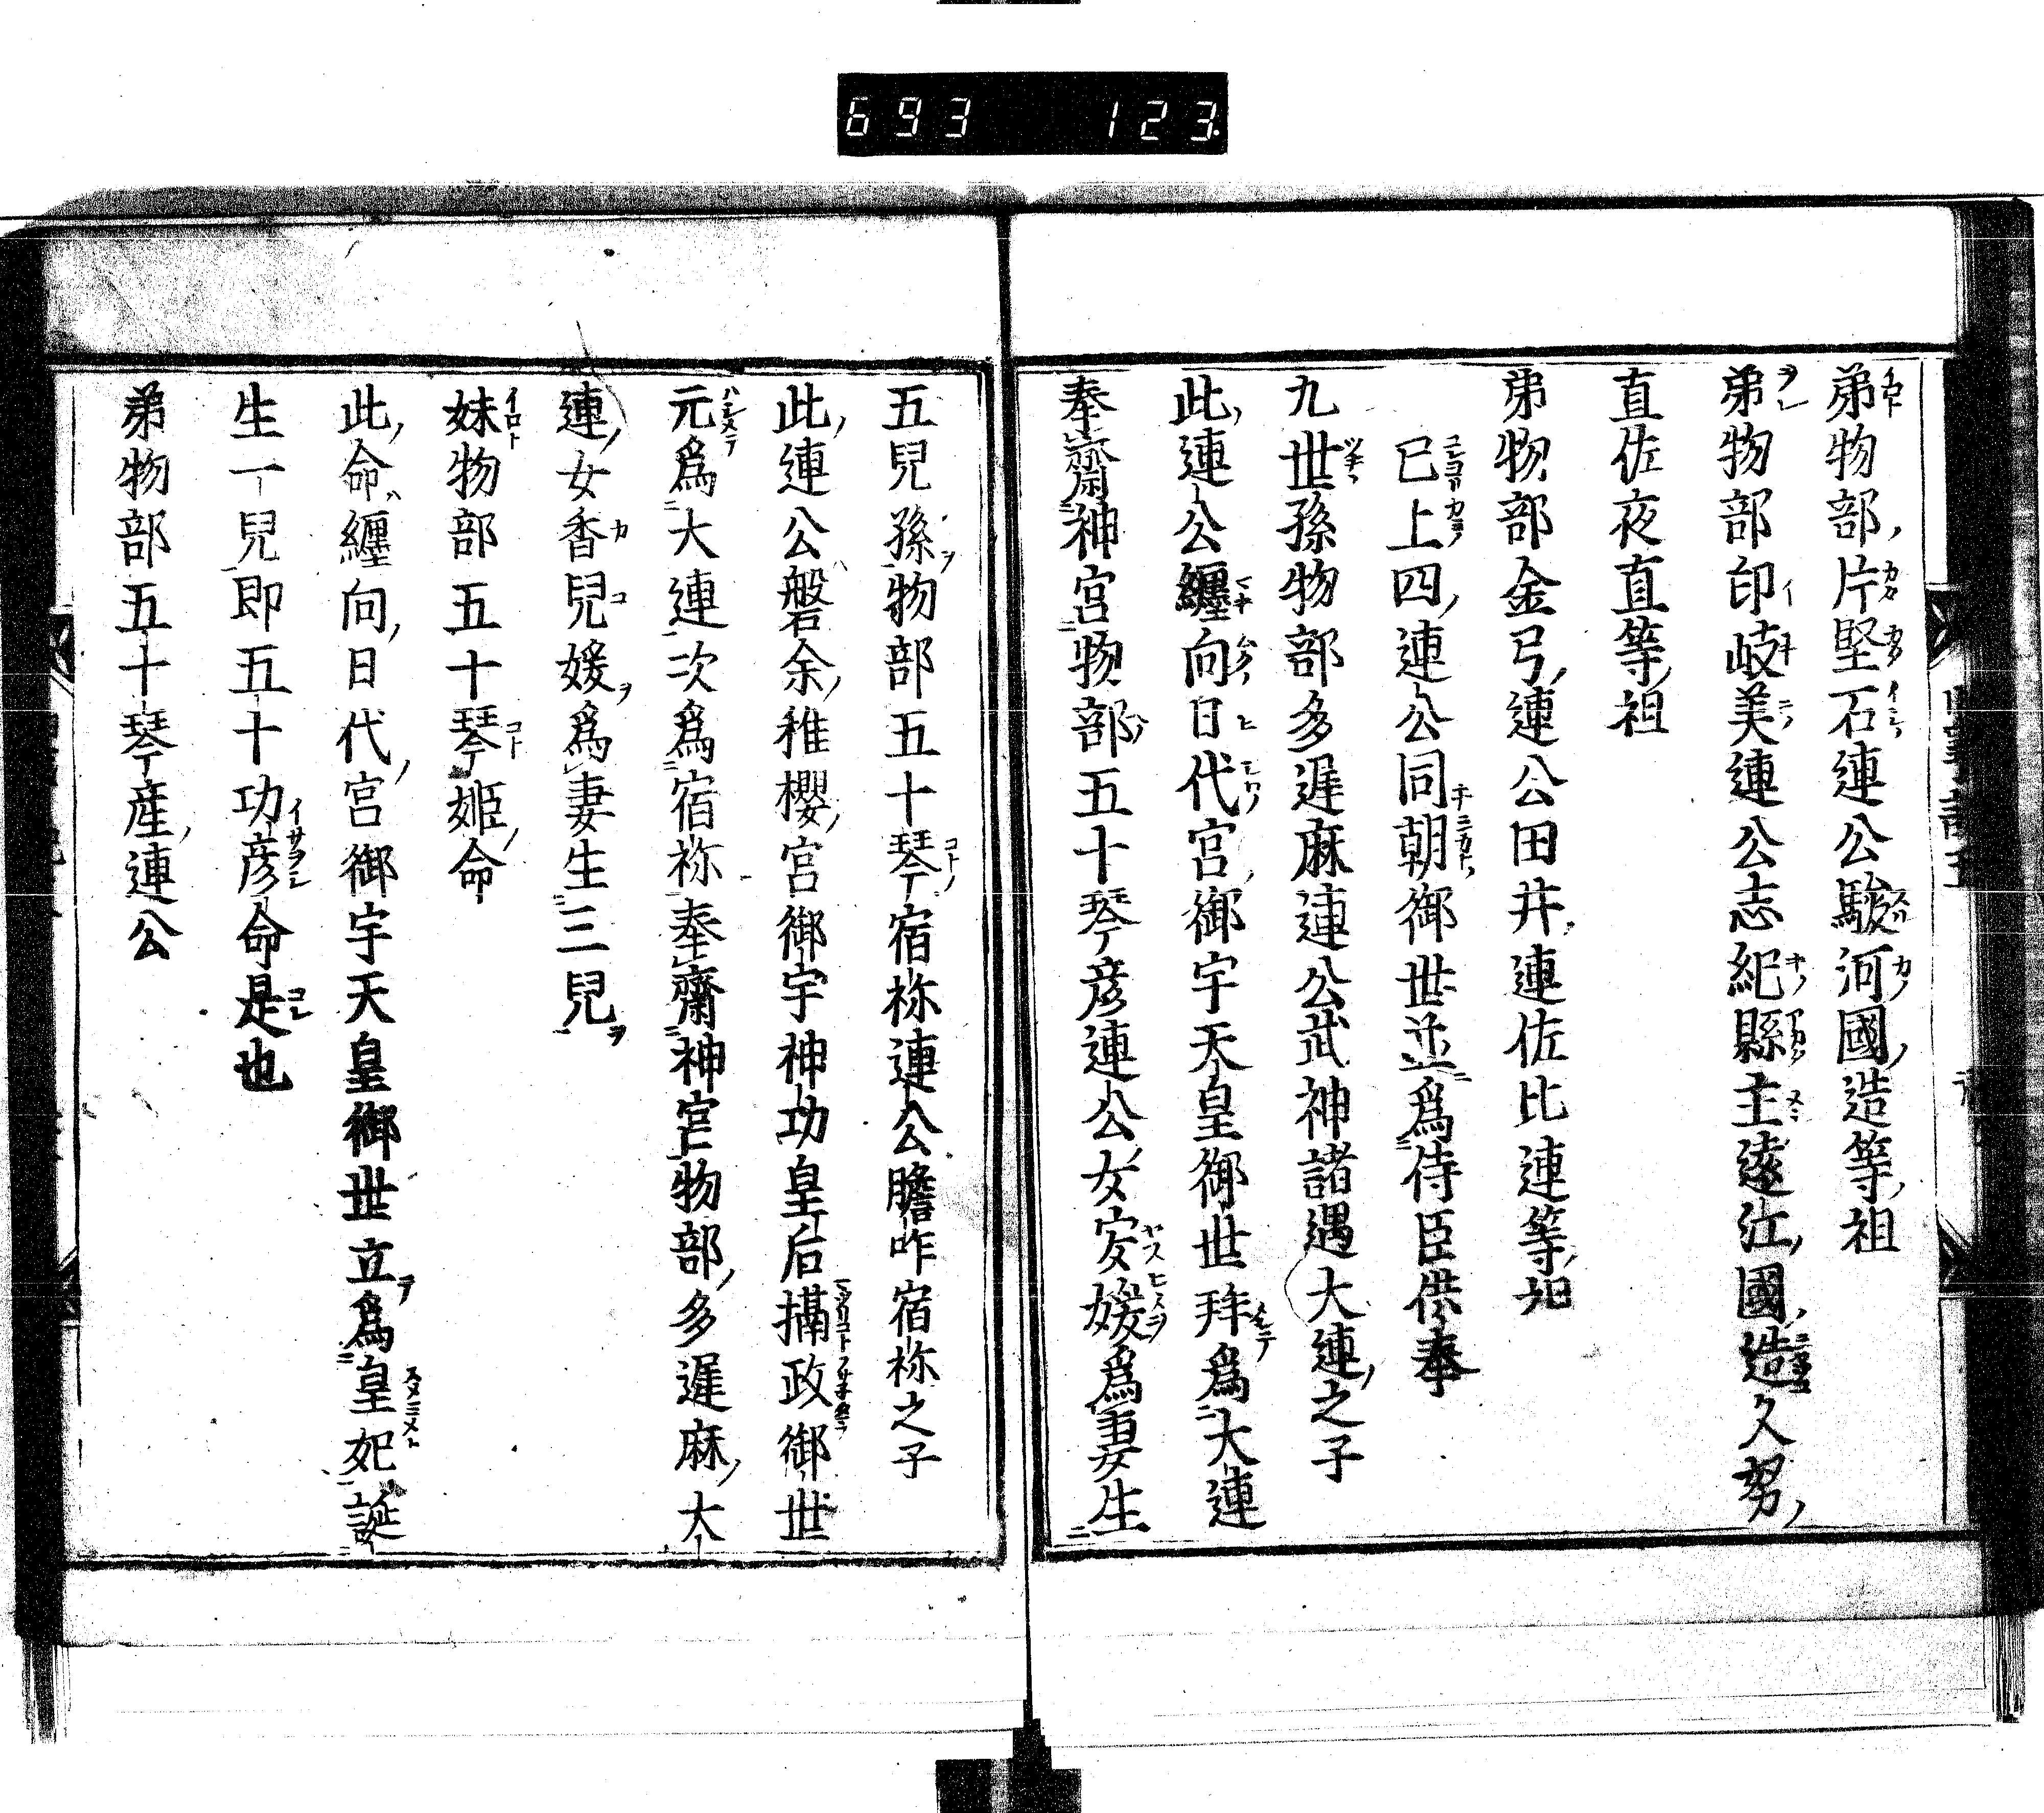 693 123
弟物部片堅石連公駿河國造等祖
弟物部印岐美連公志紀縣主遠江國造久努
直佐夜直等祖
弟物部金弓連公田井連佐比連等祖
已上四連公同朝御世並爲侍臣供奉
九世孫物部多遅麻連公武諸遇大連之子
此連公纏向日代宮御宇天皇御世拜爲大連
奉齋神宮物部五十琴彦連公女安媛爲妻生
五兒孫物部五十琴宿祢連公膽咋宿祢之子
此連公磐余稚櫻宮御宇神功皇后攝政御世
元爲大連次爲宿祢奉齋神宮物部多遅麻大
連女香兒媛爲妻生三兒
妹物部五十琴姫命
此命纏向日代宮御宇天皇御世立爲皇妃誕
生一兒即五十功彦命是也
弟物部五十琴産連公